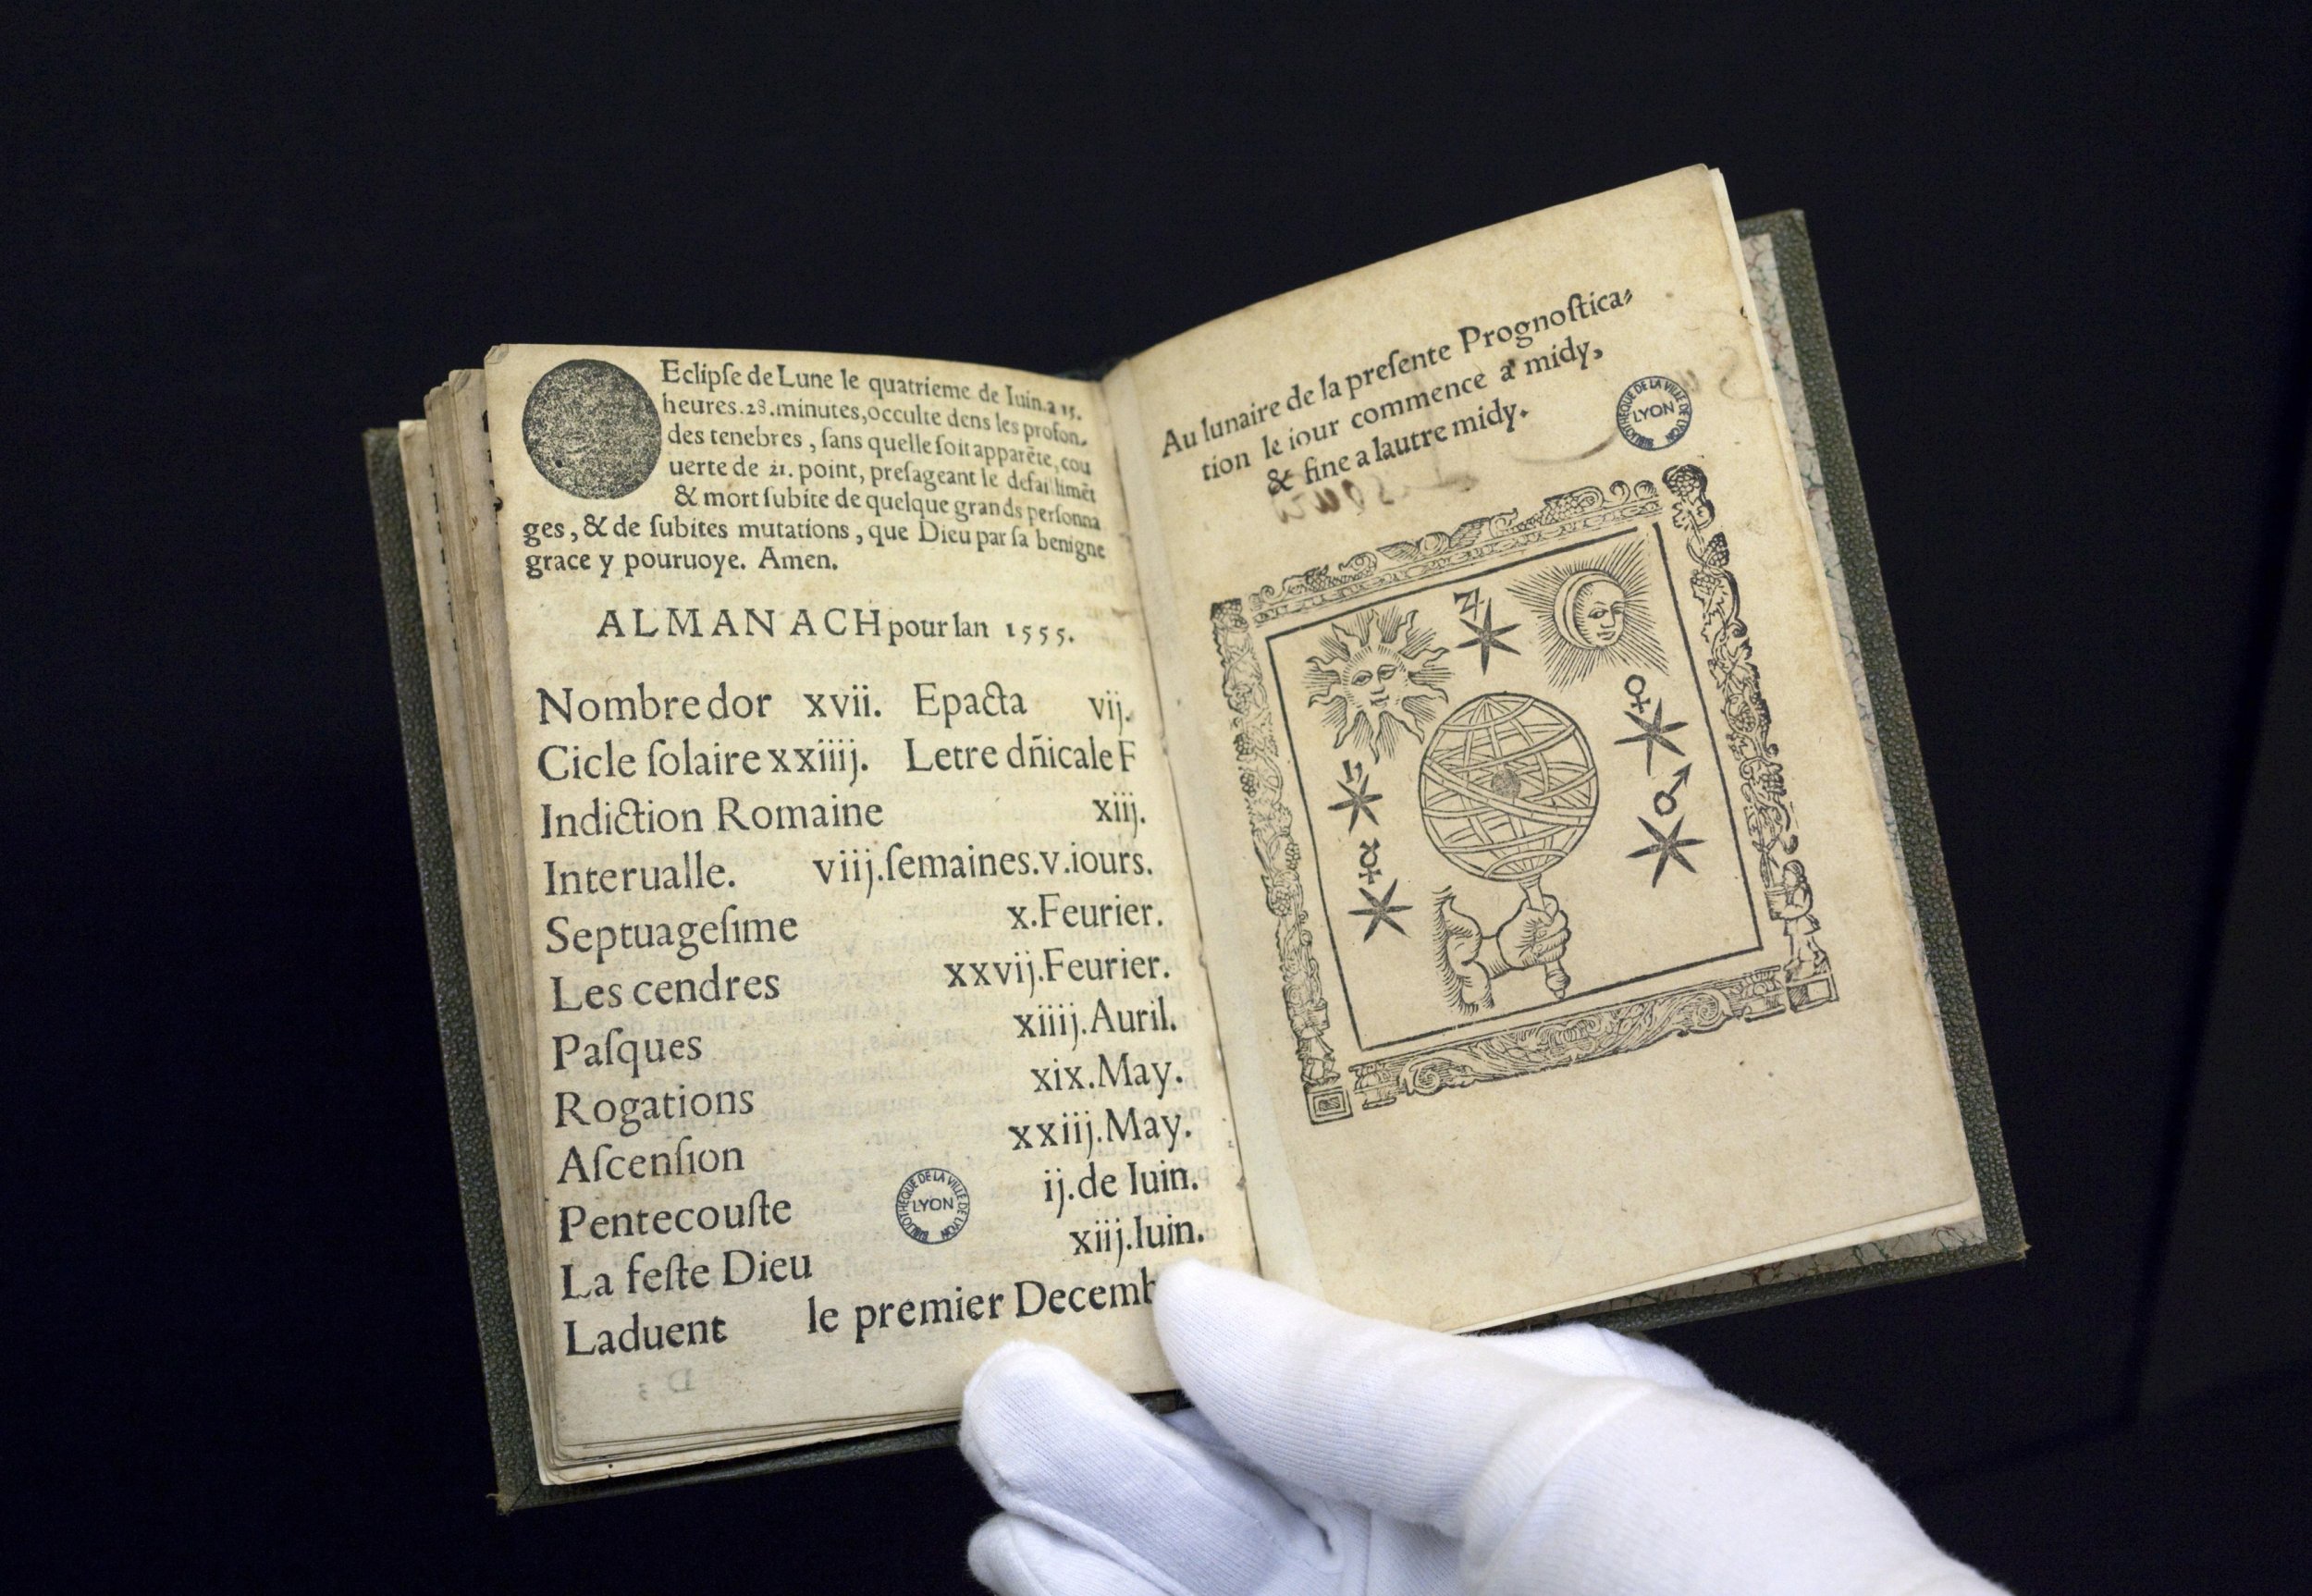 Eclipſe de Lune le quatrieme de Iuin.a 15.
heures.28.minutes,occulte dens les profon-
des tenebres, ſans quelle ſoit apparẽte, cou
uerte de 21. point, preſageant le defaillimẽt
& mort ſubite de quelque grands perſonna
ges, & de ſubites mutations, que Dieu par ſa benigne
grace y pouruoye. Amen.
ALMANACH pour lan 1555.
Nombre dor xvii. Epacta vij.
Cicle ſolaire xxiiij. Letre dñicale F
Indiction Romaine xiij.
Interualle. viij.ſemaines.v.iours.
Septuageſime x.Feurier.
Les cendres xxvij.Feurier.
Paſques xiiij.Auril.
Rogations xix.May.
Aſcenſion xxiij.May.
Pentecouſte ij.de Iuin.
La feſte Dieu xiij.Iuin.
Laduent le premier Decemb
BIBLIOTHEQUE DE LA VILLE DE LYON
LYON
Au lunaire de la preſente Prognoſtica-
tion le iour commence a midy,
& fine a lautre midy.
BIBLIOTHEQUE DE LA VILLE DE LYON
LYON